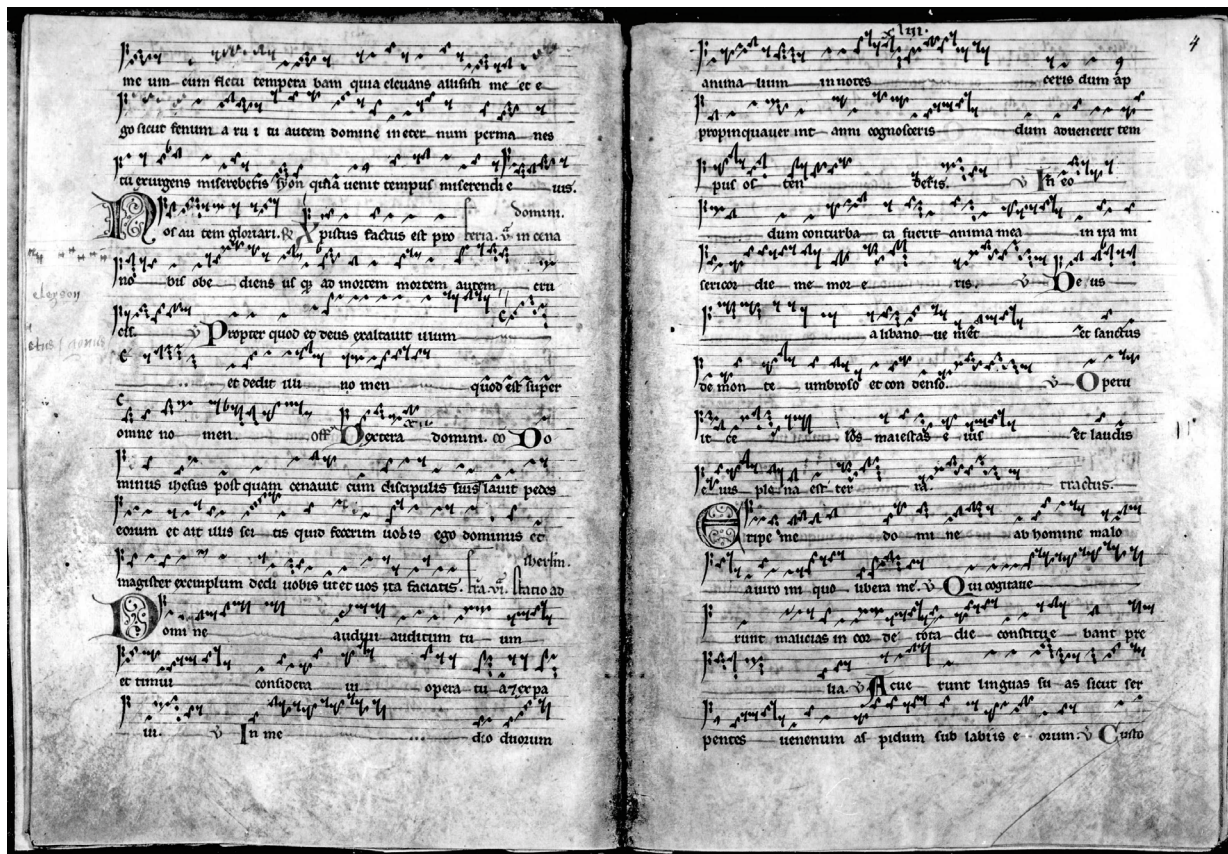 me um cum fletu tempera bam quia elevans allisisti me et e
go sicut fenum a ru i tu autem domine in eter num perma nes
tu exurgens misereberis syon quia venit tempus miserendi e ius.
domini.
Nos au tem gloriari. & Xpistus factus est pro feria. v. in cena
no bis obe diens us q3 ad mortem mortem autem cru
cis. v Propter quod et deus exaltavit illum
et dedit illi no men quod est super
omne no men. off Dextera domini. co Do
minus ihesus post quam cenavit cum discipulis suis lavit pedes
eorum et ait illis sci tis quid fecerim vobis ego dominus et
iherlm.
magister exemplum dedi vobis ut et vos ita faciatis. fria. vi. statio ad
Domi ne audivi auditum tu um
et timui considera vi opera tu a 7 expa
vi. v In me dio duorum
xliii.
4
anima lium in notes ceris dum ap
propinquaver int anni cognosceris dum advenerit tem
pus os ten deris. v In eo
dum conturba ta fuerit anima mea in ira mi
sericor die me mor e ris. v De us
a libano ve niet et sanctus
de mon te umbroso et con denso. v Operu
it ce los maiestas e ius et laudis
e ius ple na est ter ra. tractus.
Eripe me do mi ne ab homine malo
a viro ini quo libera me. v Qui cogitave
runt malicias in cor de tota die constitue bant pre
lia. v Acue runt linguas su as sicut ser
pentes venenum as pidum sub labiis e orum. v Custo
eleyson